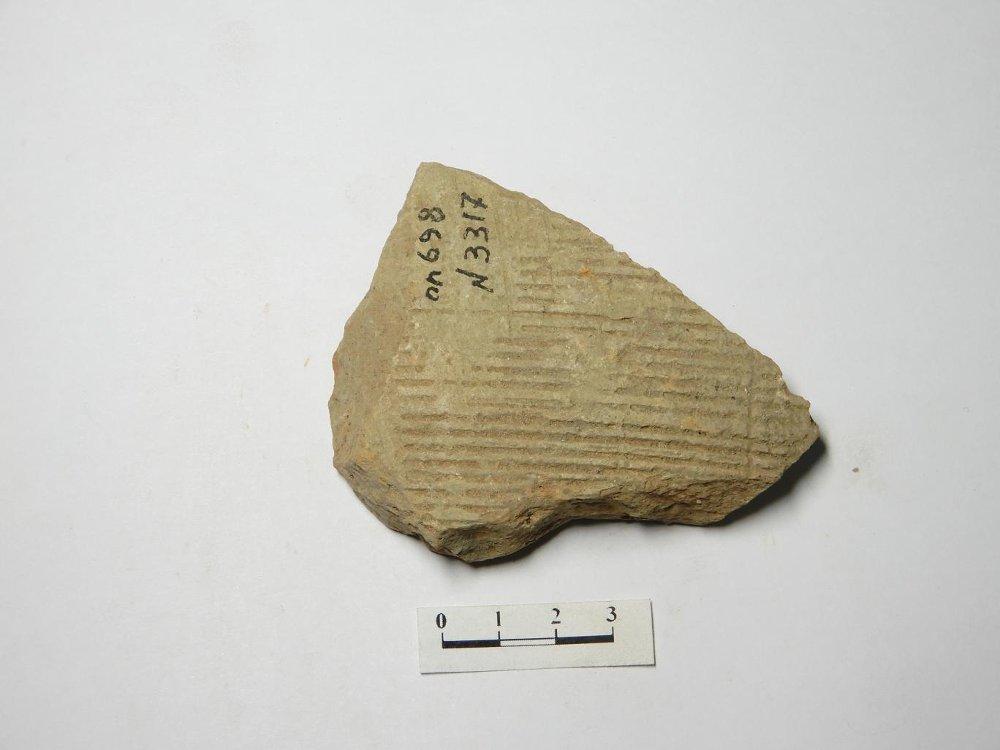 оп698
N3317
0 1 2 3